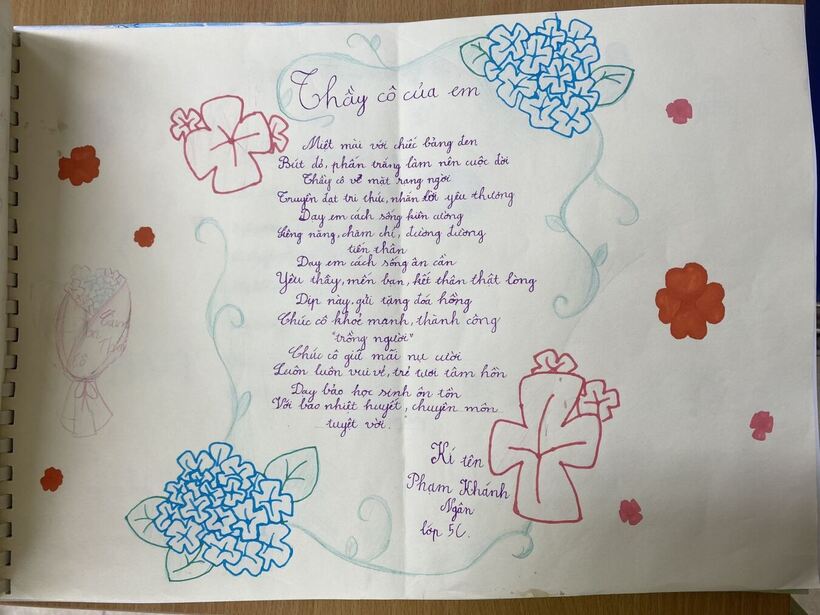 Thầy cô của em
Miệt mài với chiếc bảng đen
Bút đỏ, phấn trắng làm nên cuộc đời
Thầy cô vẻ mặt rạng ngời
Truyền đạt tri thức, nhắn lời yêu thương
Dạy em cách sống kiên cường
Siêng năng, chăm chỉ, đường đường
tiến thân
Dạy em cách sống ân cần
Yêu thầy, mến bạn, kết thân thật lòng
Dịp này, gửi tặng đoá hồng
Chúc cô khoẻ mạnh, thành công
"trồng người"
Chúc cô giữ mãi nụ cười
Luôn luôn vui vẻ, trẻ tươi tâm hồn
Dạy bảo học sinh ôn tồn
Với bao nhiệt huyết, chuyên môn
tuyệt vời.
Kí tên
Phạm Khánh
Ngân
lớp 5C.